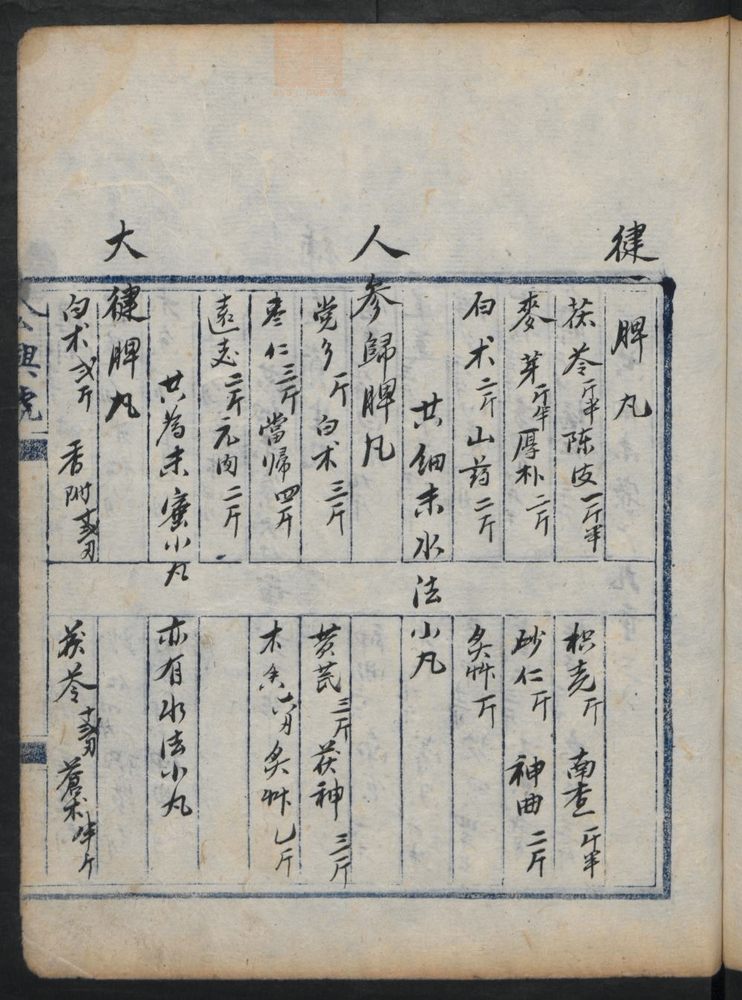 健脾丸
茯苓斤半 陈皮一斤半 枳壳斤 南查斤半
麥芽斤半 厚朴二斤 砂仁斤 神曲二斤
白术二斤 山药二斤 炙艸斤
共细末水法小丸
人參歸脾丸
党参斤 白术三斤 黄芪三斤 茯神三斤
枣仁三斤 當归四斤 木香六刃 炙艸乚斤
遠志二斤 元肉二斤
共為末蜜小丸 亦有水法小丸
大健脾丸
白术弍斤 香附 茯苓 蒼术半斤
公興號